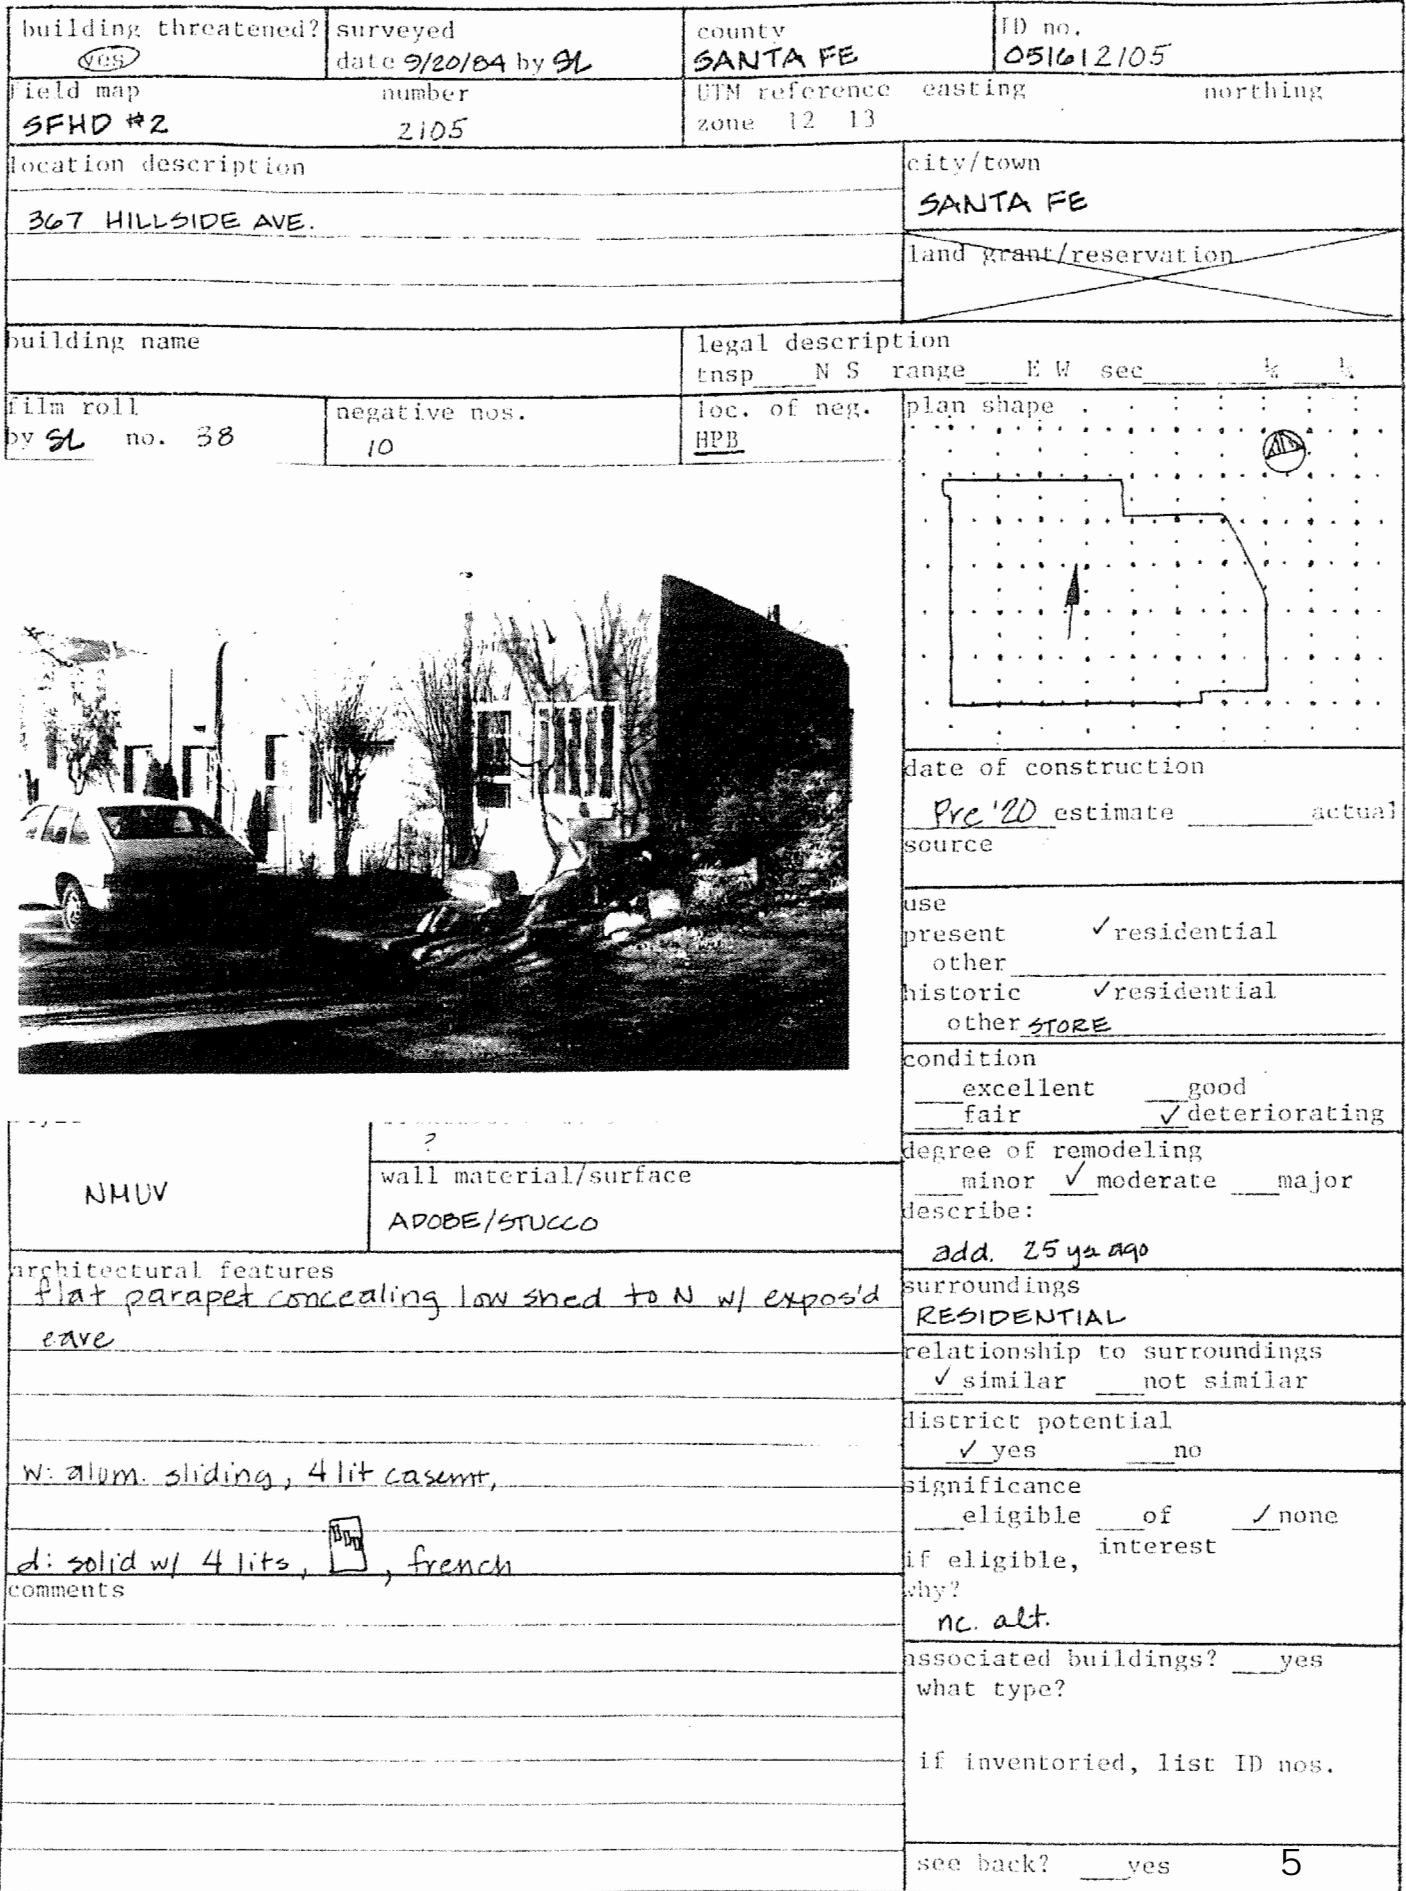 building threatened? surveyed county ID no.
yes date 9/20/84 by SL SANTA FE 051612105
field map number UTM reference easting northing
SFHD #2 2105 zone 12 13
location description city/town
367 HILLSIDE AVE. SANTA FE
land grant/reservation
building name legal description
tnsp____N S range____E W sec____ ____¼ ____¼
film roll negative nos. loc. of neg. plan shape
by SL no. 38 10 HPB
date of construction
Pre '20 estimate ________actual
source
use
present ✓residential
other
historic ✓residential
other STORE
condition
___excellent ___good
___fair ✓deteriorating
?
wall material/surface
NMUV
ADOBE/STUCCO
degree of remodeling
___minor ✓moderate ___major
describe:
add. 25 ys ago
architectural features
flat parapet concealing low shed to N w/ expos'd
eave
w: alum. sliding, 4 lit casemt,
d: solid w/ 4 lits, , french
comments
surroundings
RESIDENTIAL
relationship to surroundings
✓similar ___not similar
district potential
✓yes ___no
significance
___eligible ___of ✓none
interest
if eligible,
why?
nc. alt.
associated buildings? ___yes
what type?
if inventoried, list ID nos.
see back? ___yes 5